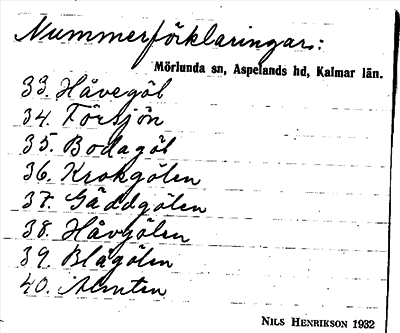 Nummerförklaringar:
Mörlunda sn, Aspelands hd, Kalmar län.
33. Håvegöl
34. Försjön
35. Bodagöl
36. Krokgölen
37. Gäddgölen
38. Håvgölen
39. Blågölen
40.
NILS HENRIKSON 1932